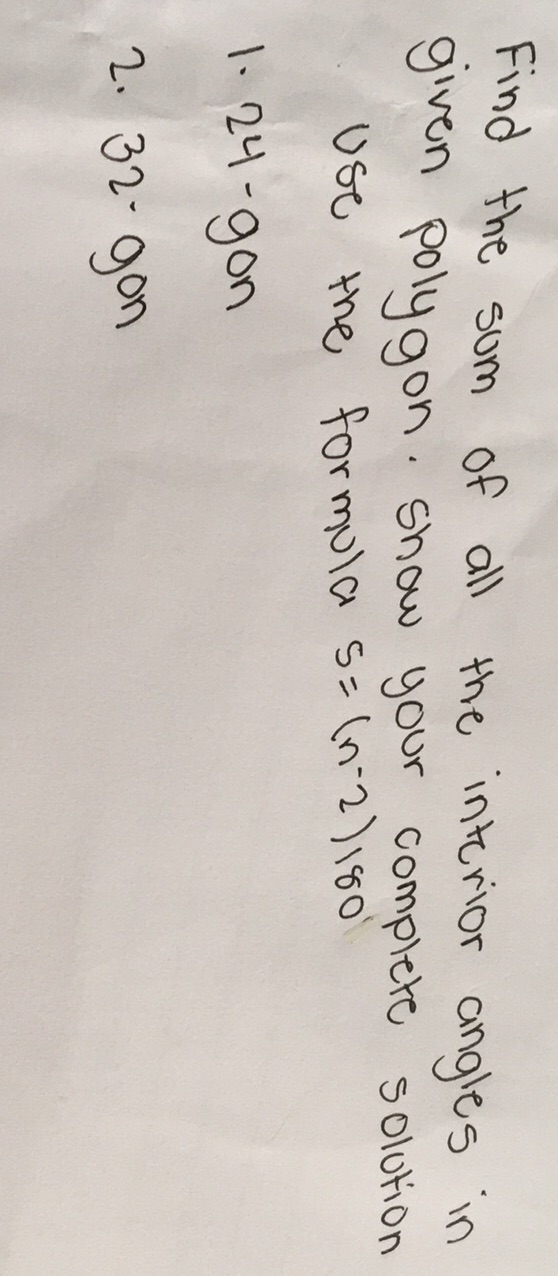 Find the sum of all the interior angles in
given polygon. show your complete solution
Use the formula s= (n-2)180
1. 24-gon
2. 32-gon